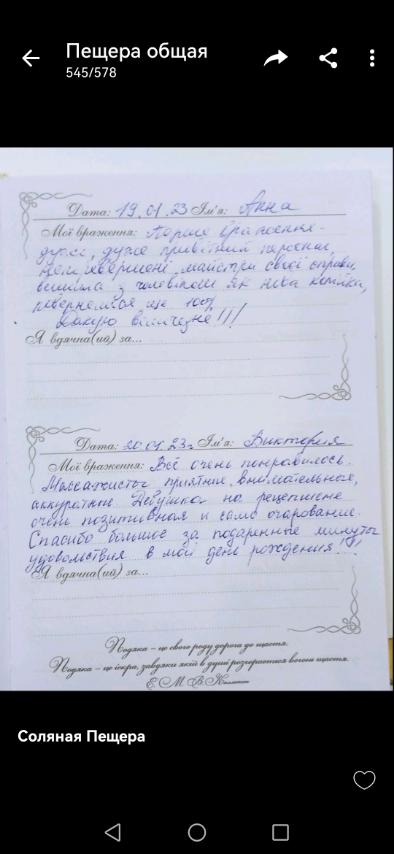 Пещера общая
545/578
Дата: 19.01.23 Ім'я: Анна
Мої враження: Перше враження -
дуже, дуже привітний персонал,
майстри своєї справи,
вийшла з чоловіком як нова копійка,
повернемося ще 100%
Дякую величезне!!!
Я вдячна(ий) за...
Дата: 20.01.23г. Ім'я: Виктория
Мої враження: Всё очень понравилось.
Массажистог приятние, внимательное,
аккуратние. Девушка на рецепшене
очень позитивная и само очарование.
Спасибо большое за подаренные минуты
удовольствия в мой день рождения!!!
Я вдячна(ий) за...
Подяка – це свого роду дорога до щастя.
Подяка – це іскра, завдяки якій в душі розгорається вогонь щастя.
Е. М. В.
Соляная Пещера